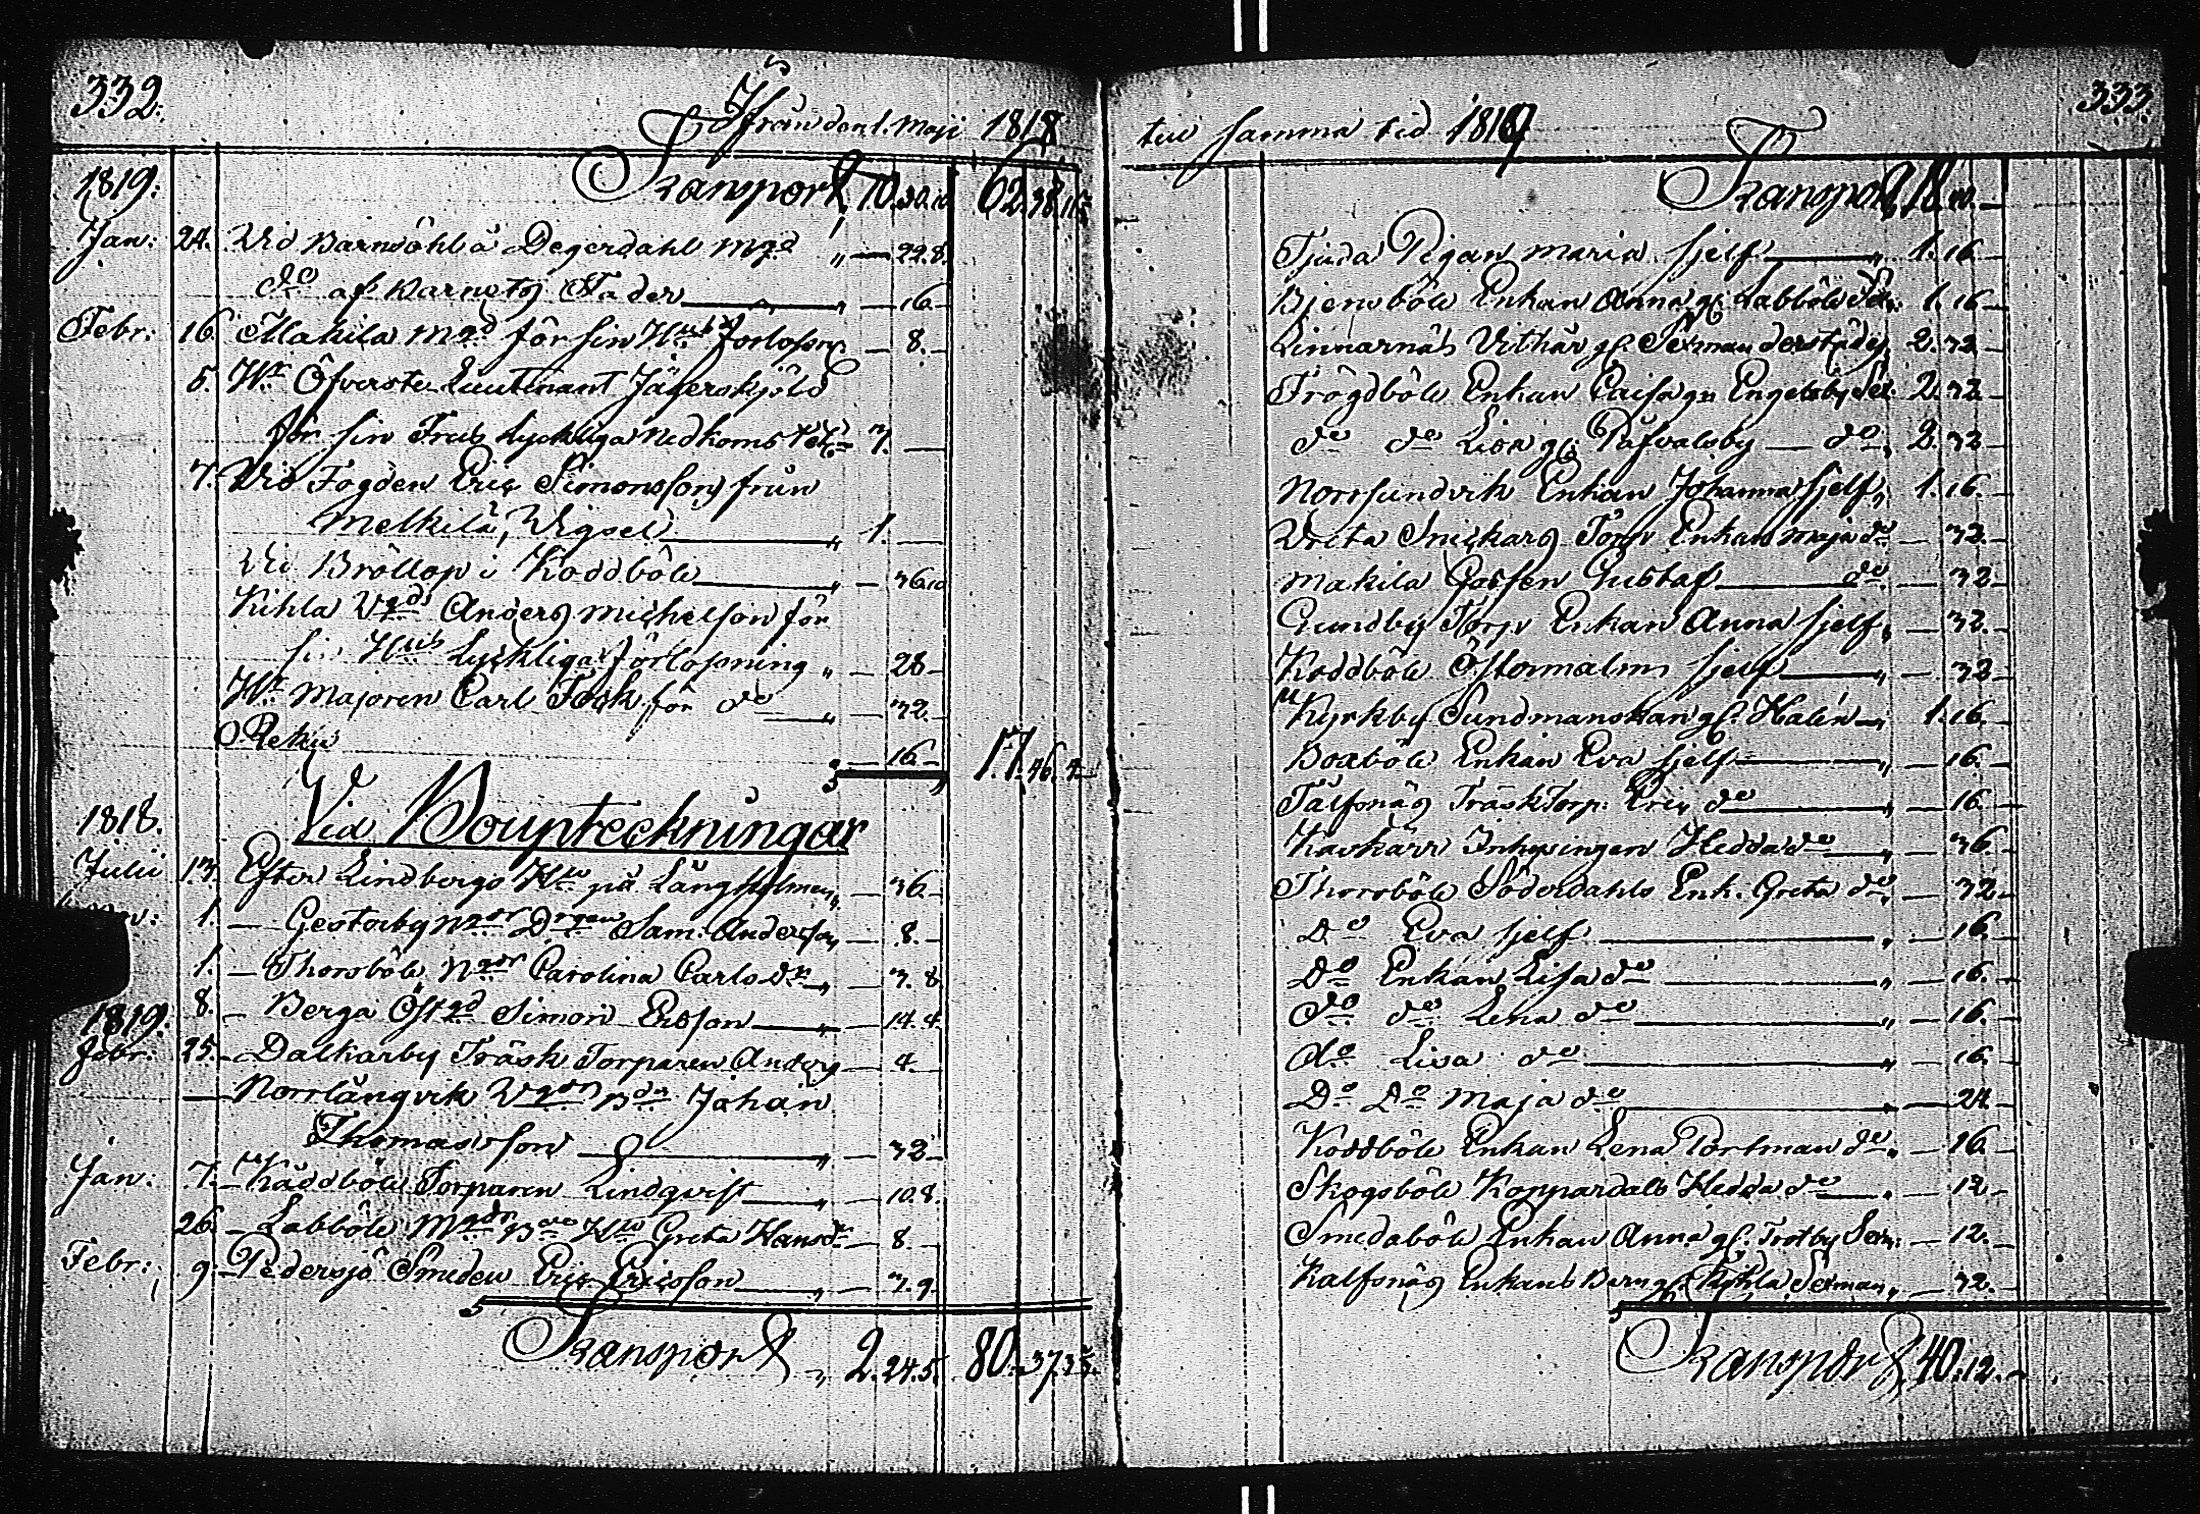 332.
Ifrån den 1. Maji 1818
1819. Transport 10.30.10 62.38.11
Jan: 24. Vid Barnsöhl å Degerdahl " — 22.8.
do af Karnetoj Fader " — 16 —
Febr: 16. Makila för sin Hust. — 8. —
5. Hr Öfverste Lieutenant Jägerskjöld
för sin Frus Lyckliga 7. —
7. Vid Fogden Eric Simonsson från
Melkilä, Vigsel " 1. —
Vid Bröllop i Koddböle " — 36.10
Kihla Anders Michelson för
sin Hus Lyckliga förlossning " — 28 —
Hr Majoren Carl Fock för do " — 32 —
16 — 17.46.4
Vid Boupteckningar
1818.
Julii 13. Efter Lindbergs Hu på Långholmen " — 36 —
1. — Gestorby Sam. Anderson — 8. —
1. — Thorsböle Carolina Carlsdr " — 7.8
8. — Berga Östgd Simon Ersson " — 14.4
1819.
Febr: 25. — Dalkarby Träsk Torparen Anders — 4 —
— Norrlångvik Johan
Thomasson " — 32 —
Jan: 7. — Käddböle Torparen Lindqvist " — 10.8.
26. — Labböle Greta Hansdr — 8. —
Febr: 9. — Pedersjö Smeden Eric Ericsson " — 7.9
Transport " 2.24.5. 80.37.3
333.
till samma tid 1819
Transport 18.
Tjuda Pigan Maria sjelf " 1.16 —
Bjensböle Enkan Anna gf. Labböle 1.16 —
Linnarnäs gf. Sexman derstädes 2.32 —
Frögdböle Enkan Caisa gn Engelsby 2.32 —
do do Lisa gf. Påfvalsby — do 2.32 —
Norrsundvik Enkan Johanna sjelf " 1.16 —
Wreta Snickars Torp Enkan Maja do — 32 —
Makila Gossen Gustaf do — 32 —
Gundby Torp Enkan Anna sjelf " — 32 —
Koddböle Östermalm sjelf " — 32 —
Kyrkby Sundmanskan gf. Halén 1.16 —
Boxböle Enkan Eva sjelf " — 16 —
Tälfsnäs Träsktorp: Eric do " — 16 —
Kavkärr Inhysingen Hedda do " — 36 —
Thorsböle Söderdahls Enk. Greta do " — 32 —
Do Eva sjelf " — 16 —
Do Enkan Lisa do " — 16 —
do do Lena do " — 16 —
do Lisa do " — 16 —
Do Do Maja do " — 24 —
Koddböle Enkan Lena Portman do " — 16 —
Skogsböle Koppardals Hedda do " — 12 —
Smedaböle Enkan Anna gf. Trotby Sexm: — 12 —
Kalfsnäs Enkans Barn gf. Kihla Sexman " — 32 —
Transport 40.12. —